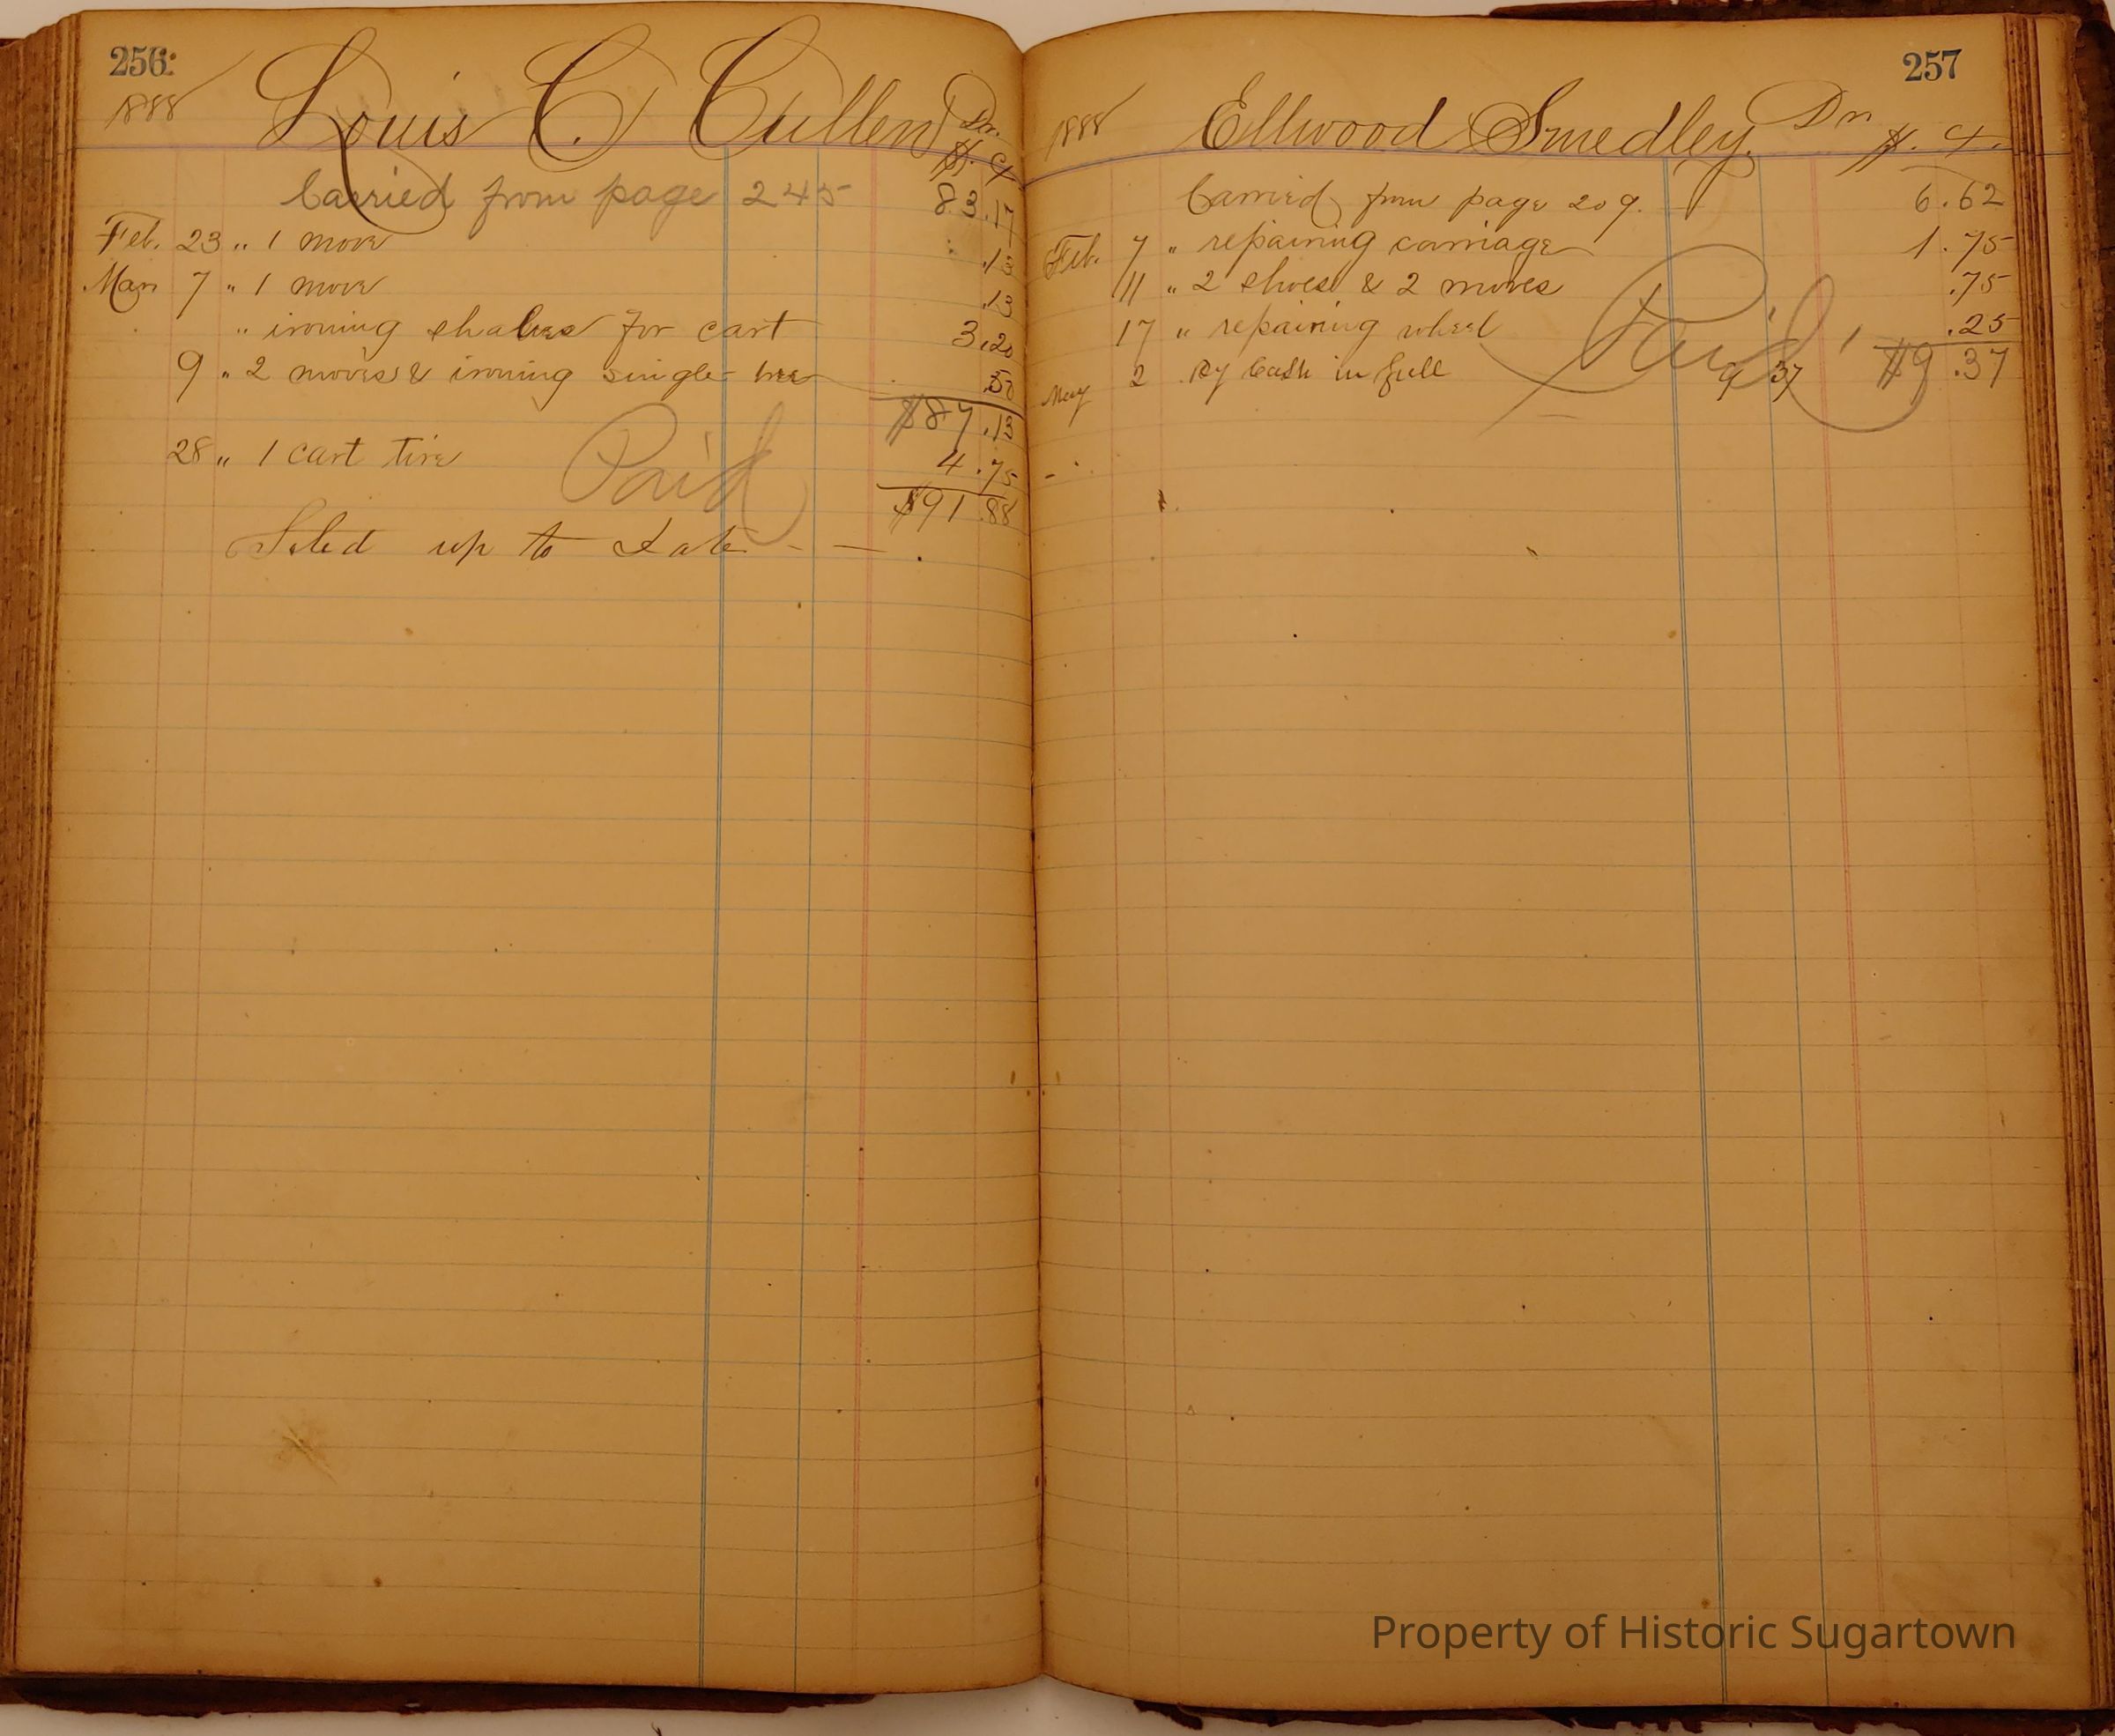 256
1888 Louis C. Cullen Dr.
$. c
Carried from page 245 83.17
Feb. 23 " 1 move .13
Mar 7 " 1 move .13
" ironing shalves for cart 3.20
9 " 2 moves & ironing single tree .50
$87.13
28 " 1 cart tire 4.75
Paid
$91.88
up to Date - -
257
1888 Ellwood Smedley Dr
$. c.
Carried from page 209. 6.62
Feb. 7 " repairing carriage 1.75
11 " 2 shoes & 2 moves .75
17 " repairing wheel .25
Paid
May 2 By Cash in full 9 37 $9.37
Property of Historic Sugartown